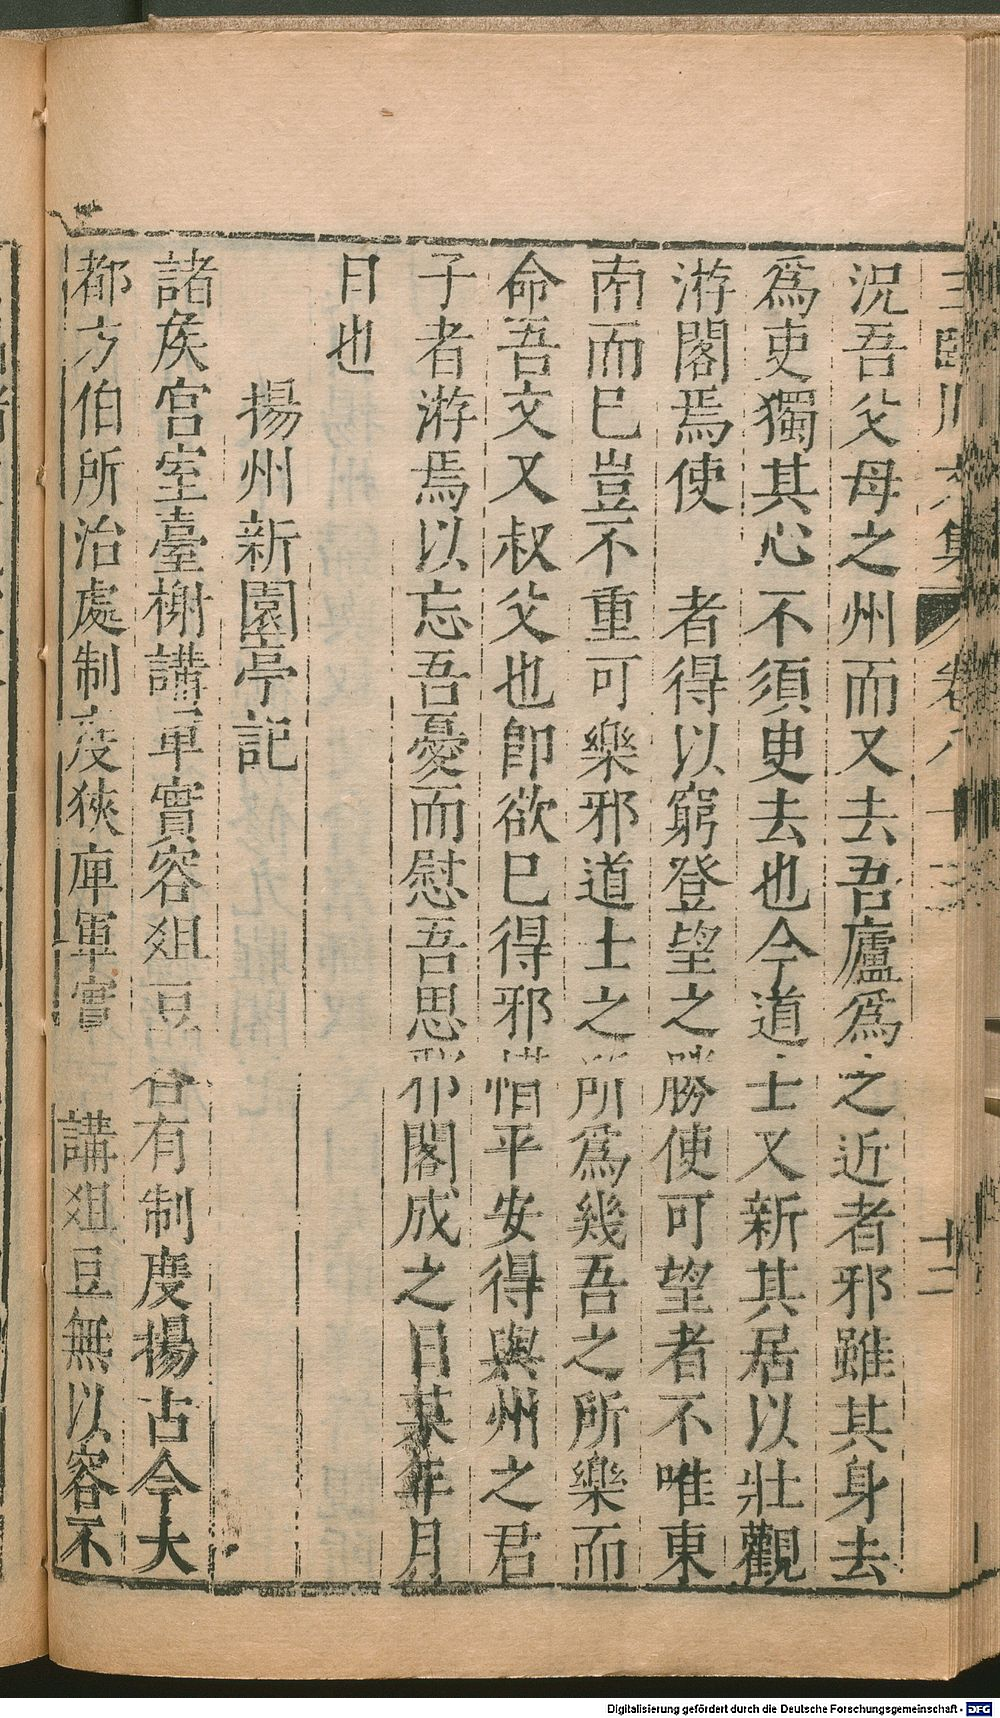 王臨川文集 卷八十三 十二
況吾父母之州而又去吾廬爲之近者邪雖其身去
爲吏獨其心不須臾去也今道士又新其居以壯觀
游閣焉使 者得以窮登望之勝使可望者不唯東
南而已豈不重可樂邪道士之所爲幾吾之所樂而
命吾文又叔父也即欲已得邪惜平安得與州之君
子者游焉以忘吾憂而慰吾思邪閣成之日某年月
日也
揚州新園亭記
諸矦宮室臺榭講軍實容俎豆各有制度揚古今大
都方伯所治處制度狹庳軍實 講俎豆無以容不